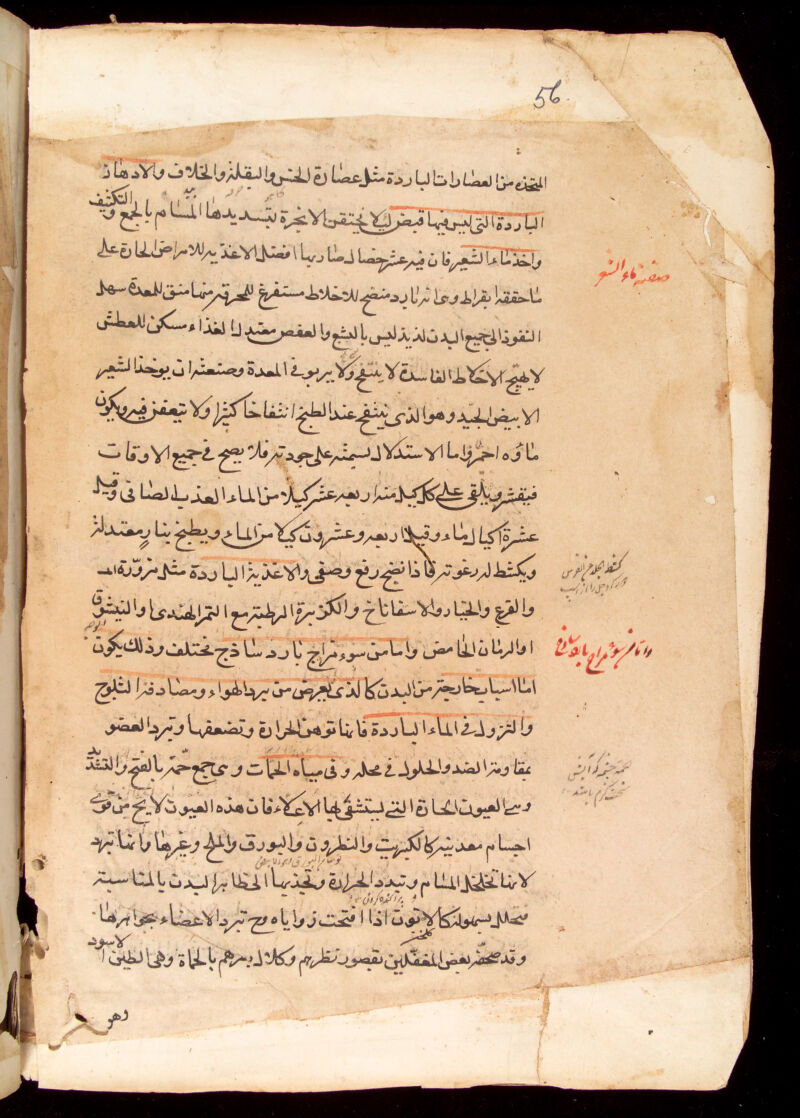 56
المتخذه من العصارات الباردة مثل عصارة الخس والبقلة والخلاف والادهان
الباردة التى ليس فيها قبض لئلا تحتقن الابخرة بتسديدها المسام بالجمع والتكثيف
واخذ ماء الشعير فان فيه عشر خصال صار بها افضل الاغذية للامراض الحارة على
صفة ماء الشعير
ما حققه ابقراط وهى انه بارد منضج للاخلاط مستفرغ للمحرقة منها منق للمعدة سهل
النفوذ الى جميع البدن لذيذ ليس بالبشع والعفص معتدل الغذاء مسكن للعطش
لا يهيج الاخلاط الفاسدة لا ينتفخ ولا يربو فى المعدة وصنعته ان يوخذ الشعير
الابيض الجيد وهو الذى ينتفخ عند الطبخ انتفاخا كثيرا ولا يتعفن فيه ويكون
ماؤه احمر واما الاستدلال بسمنه على جودته فلا يصح فى جميع الاوقات
فيقشر ويلقى على كل كيل منه اربعة عشر كيلا من الماء العذب الصافى وقيل
عشرة اكيال ماء وقيل اربعة وعشرون كيلا من الماء ويطبخ بنار معتدلة
ويكشط له رغوته فاذا نضج رفع وصفى والاغذية الباردة مثل مزورة الـ
والقرع والخيار والاسفاناخ والكزبرة الرطبة مع التمر الهندى والنيشوق
او الرمان الحامض واما من سوء مزاج بارد ساذج مختلف وذلك يكون
اما اسباب خارجة من البدن كالذى يعرض من برد الهواء ومصادفة الثلوج
والنزول فى الماء الباردة فانها توهن الحرارة وتضعفها وتبرد العضو
بمقاومة الضد والحلول فى محله وفى مياه الحمات وهى جمع حمة بالفتح والتشديد
وهى العيون الحارة التى يستشفى بها الاعلاء فان هذه العيون لا يخ من قوى
اجسام معدنية كالكبريت والنطرون والبورق والملح وغيرها وانما تبرد
لانها تخلخل المسام وتبدد الحرارة وتجذبها الى ظاهر البدن بالمناسبة
فتحلل بسهولة كالاتون اذا افتحت زواياه وح تبرد الاعضاء بجواهرها
وقد صحفه بعض المغفلين بقصور نظرهم وكلال بصرهم بالحماة وهى الطين الاسود
وهو